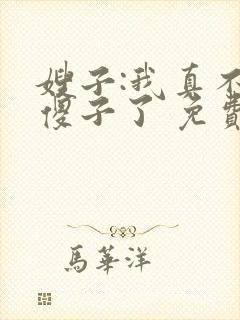 嫂子:我真不
傻子了 免費
馬華洋